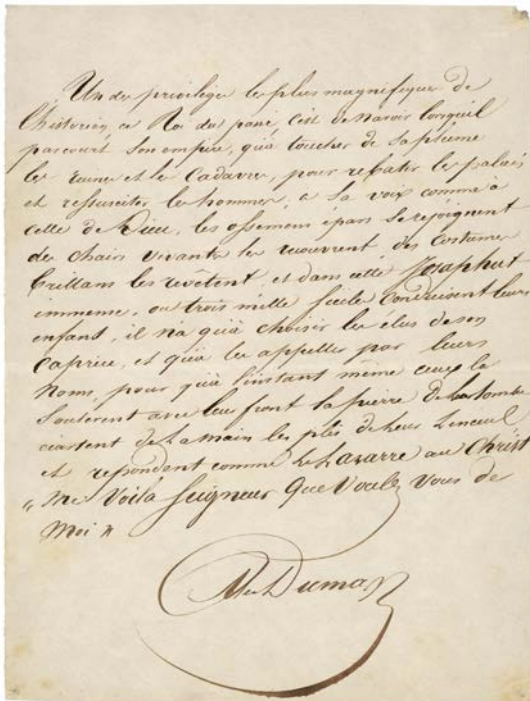 Un des privilèges les plus magnifiques de
l'historien, ce Roi du passé c'est de n'avoir lorsqu'il
parcourt son empire, qu'à toucher de sa plume
les ruines et les Cadavres, pour rebatir les palais
et ressusciter les hommes; à sa voix comme à
celle de Dieu, les ossemens épars se rejoignent
des chairs vivantes les recouvrent, des costumes
brillans les revêtent, et dans cette Josaphat
immense, ou trois mille siecles conduisent leurs
enfants, il n'a qu'à choisir les élus de son
Caprice, et qu'à les appeller par leurs
Noms, pour qu'à l'instant meme ceux la
soulevent avec leur front la pierre de la tombe
ecartent de la main les plis de leur Linceul
et repondent comme le Lazarre au Christ
« me Voilà Seigneur Que Voulez vous de
Moi »
Alex Dumas